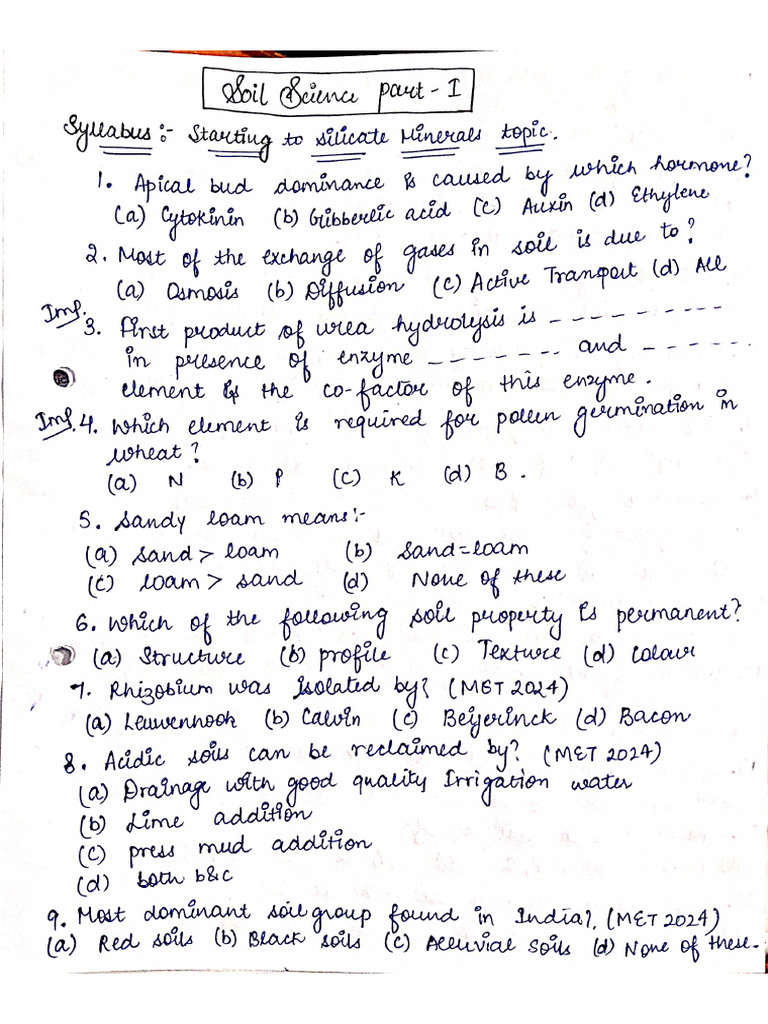 Soil Science part - I
Syllabus :- Starting to silicate Minerals topic.
1. Apical bud dominance is caused by which hormone?
(a) Cytokinin (b) Gibberlic acid (c) Auxin (d) Ethylene
2. Most of the exchange of gases in soil is due to?
(a) Osmosis (b) Diffusion (c) Active Tranport (d) All
Imp.
3. First product of urea hydrolysis is - - - - - - - - - -
in presence of enzyme - - - - - - - and - - - - - -
element is the co-factor of this enzyme.
Imp. 4. Which element is required for pollen germination in
wheat?
(a) N (b) P (c) K (d) B.
5. Sandy loam means:-
(a) sand > loam (b) sand = loam
(c) loam > sand (d) None of these
6. Which of the following soil property is permanent?
(a) Structure (b) profile (c) Texture (d) colour
7. Rhizobium was isolated by? (MET 2024)
(a) Leuwenhook (b) Calvin (c) Beijerinck (d) Bacon
8. Acidic soils can be reclaimed by? (MET 2024)
(a) Drainage with good quality Irrigation water
(b) Lime addition
(c) press mud addition
(d) both b&c
9. Most dominant soil group found in India?, (MET 2024)
(a) Red soils (b) Black soils (c) Alluvial soils (d) None of these.